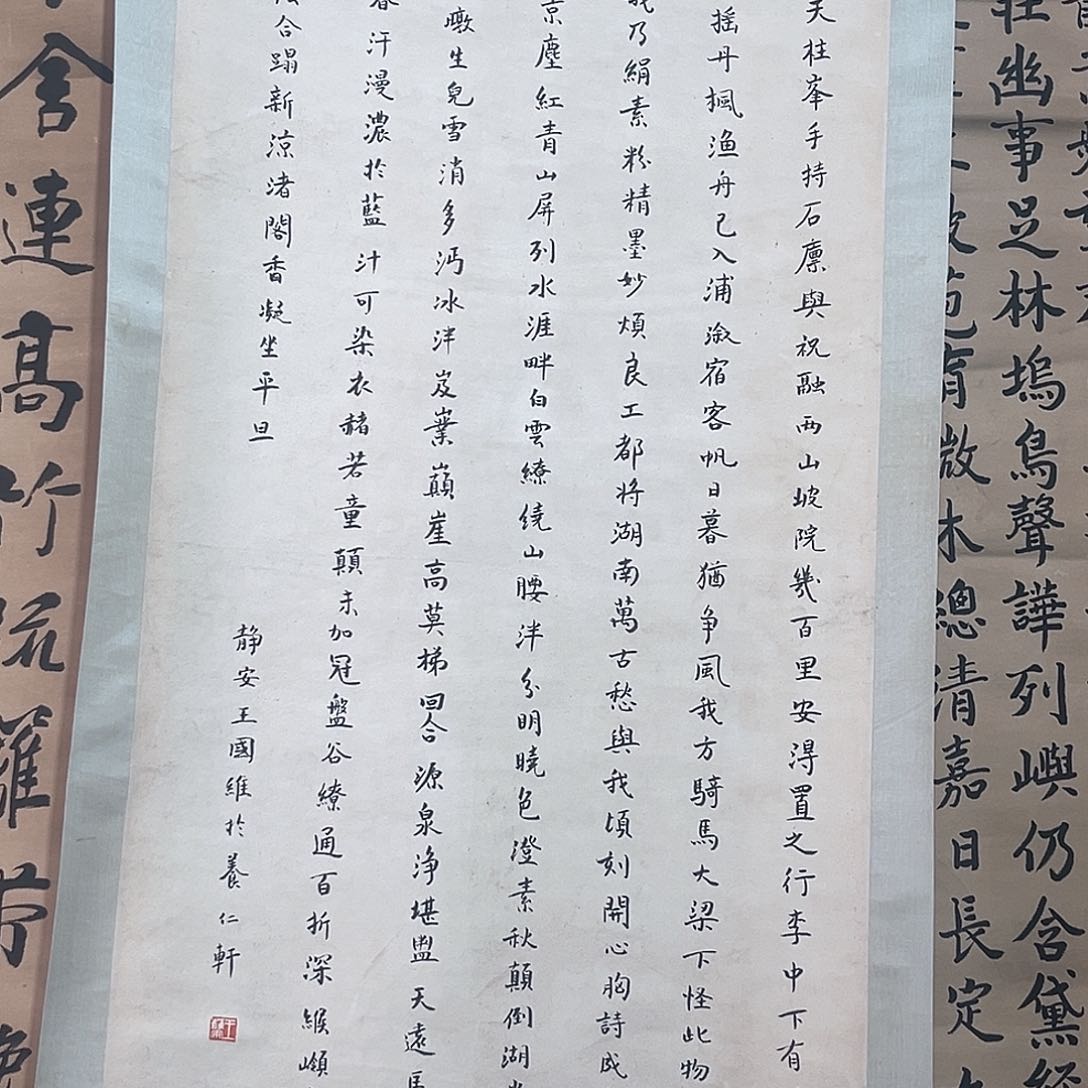 天柱峯手持石廪與祝融两山坡院幾百里安得置之行李中下有
摇丹楓漁舟已入浦溆宿客帆日暮猶争風我方騎馬大梁下怪此物
我乃絹素粉精墨妙煩良工都将湖南萬古愁與我頃刻開心胸詩成
京塵紅青山屏列水涯畔白雲繚绕山腰泮分明曉色澄素秋顛倒湖光
暾生皃雪消多沔冰泮岌嶪巔崖高莫梯回合源泉浄堪盥天遠
春汗漫濃於藍汁可染衣赭若童顛未加冠盤谷繚通百折深緱嶺
合蹋新涼渚閣香凝坐平旦
静安王國維於養仁軒
幽事足林塢鳥聲譁列嶼仍含黛
敂苞有散木總清嘉日長定
舍連高竹疏籬帶晚